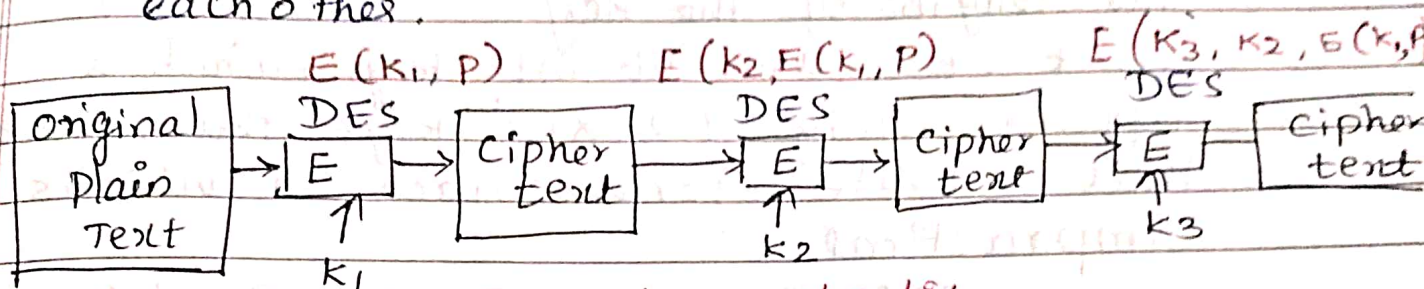 each other.
E (K1, P)
E (K2, E (K1, P)
E (K3, K2, E (K1, P
DES
DES
DES
original
Plain
Text
E
Cipher
text
E
Cipher
text
E
Cipher
text
K1
K2
K3